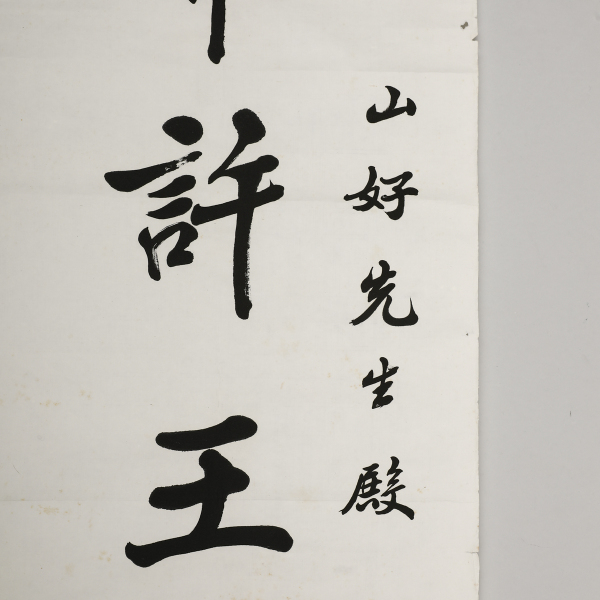 山好先生殿
許王